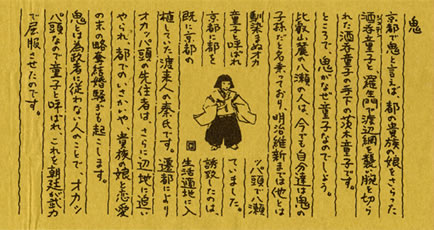 鬼
京都で鬼と言えば、都の貴族の娘をさらった
酒呑童子と、羅生門で渡辺綱を襲い腕を切ら
れた酒呑童子の手下の茨木童子です。
ところで、鬼がなぜ童子なのでしょう。
比叡山麓の八瀬の人は、今でも自分達は鬼の
子孫だと名乗っており、明治維新までは他とは
馴染まぬオカッパ頭で八瀬
童子と呼ばれていました。
京都に都を誘致したのは、
既に京都の生活適地に入
植していた渡来人の秦氏です。遷都により
オカッパ頭の先住者は、さらに辺地に追い
やられ、都でのいさかいや、貴族の娘と恋愛
の末の略奪結婚騒ぎも起こします。
鬼とは為政者に従わない人のことで、オカッ
パ頭なので童子と呼ばれ、これを朝廷が武力
で屈服させたのです。